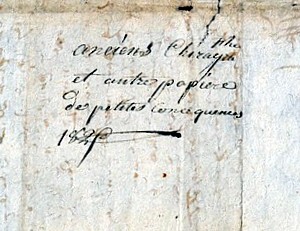 anciens Chirographe
et autre papiere
de petites consequences